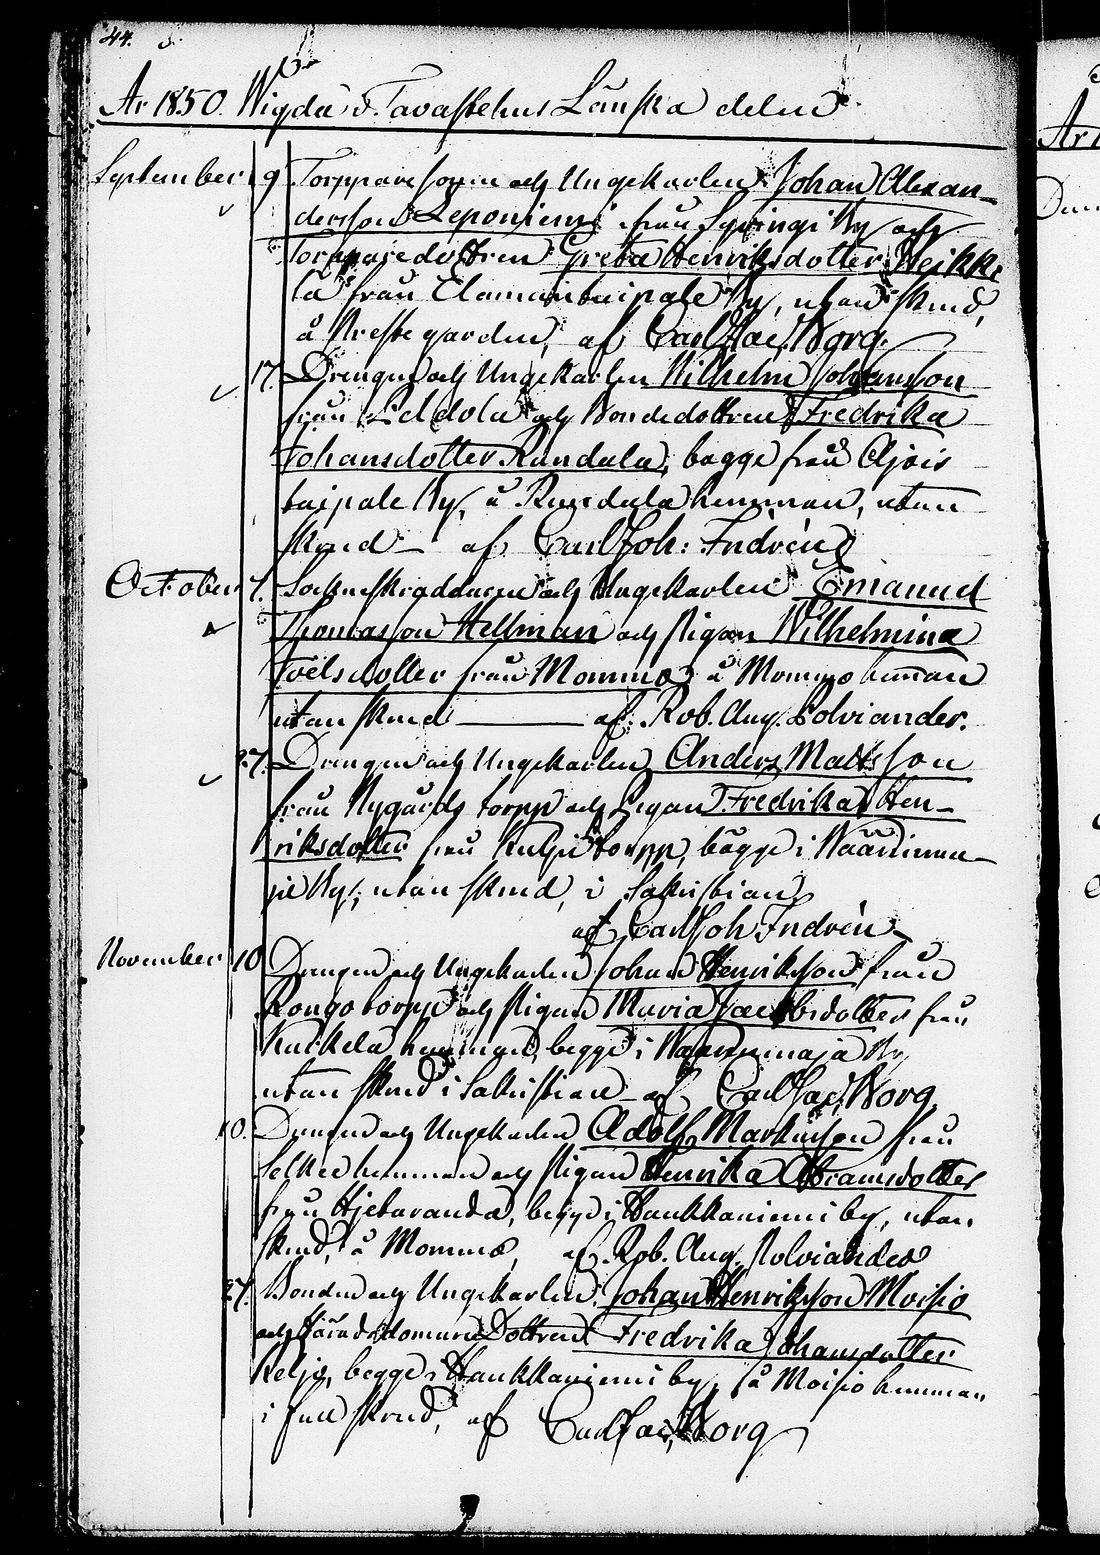 44.
År 1850. Wigda i Tavastehus Länska delen
September 9 Torpparesonen och Ungekarlen Johan Alexan-
dersson Leponiemi från Syvingi By och
Torpparedottren Greta Henriksdotter Heikki
lä från Elamaintaipale By, utan skrud,
å Prestegården, af Carl Jac. Borg.
17. Drengen och Ungekarlen Wilhelm Johansson
från och Bondedottren Fredrika
Johansdotter Rundala, begge från Ajois
taipale By, å Rundala hemman, utan
skrud — af Carl Joh: Indrén
October 7. Sockneskräddaren och Ungekarlen Emanuel
Thomasson Hellman och Pigan Wilhelmina
Joëlsdotter från Mommo å Mommo hemman
utan skrud — af. Rob. Aug. Polviander.
27. Drengen och Ungekarlen Anders Mattsson
från Nygårds torpp och Pigan Fredrika Hen-
riksdotter från torpp, bägge i Wäärinma-
ja By, utan skrud, i Sakristian
af Carl Joh Indrén
November 10 Drengen och Ungekarlen Johan Henriksson från
Rongo torpp och Pigan Maria Jacobsdotter från
hemman, begge i Wäärinmaja By
utan skrud i Sakristian af Carl Jac. Borg
10. Drengen och Ungekarlen Adolf Markusson från
Selkee hemman och Pigan Henrika Abramsdotter
från Hjetaranda, begge i Haukkaniemi by, utan
skrud, å Mommo, af. Rob. Aug. Polviander
27. Bonden och Ungekarlen Johan Henriksson Moisio
och Häradsdomare Dottren Fredrika Johansdotter
Keljo, begge i Haukkaniemi by, å Moisio hemman
i full skrud, af Carl Jac. Borg
År 1